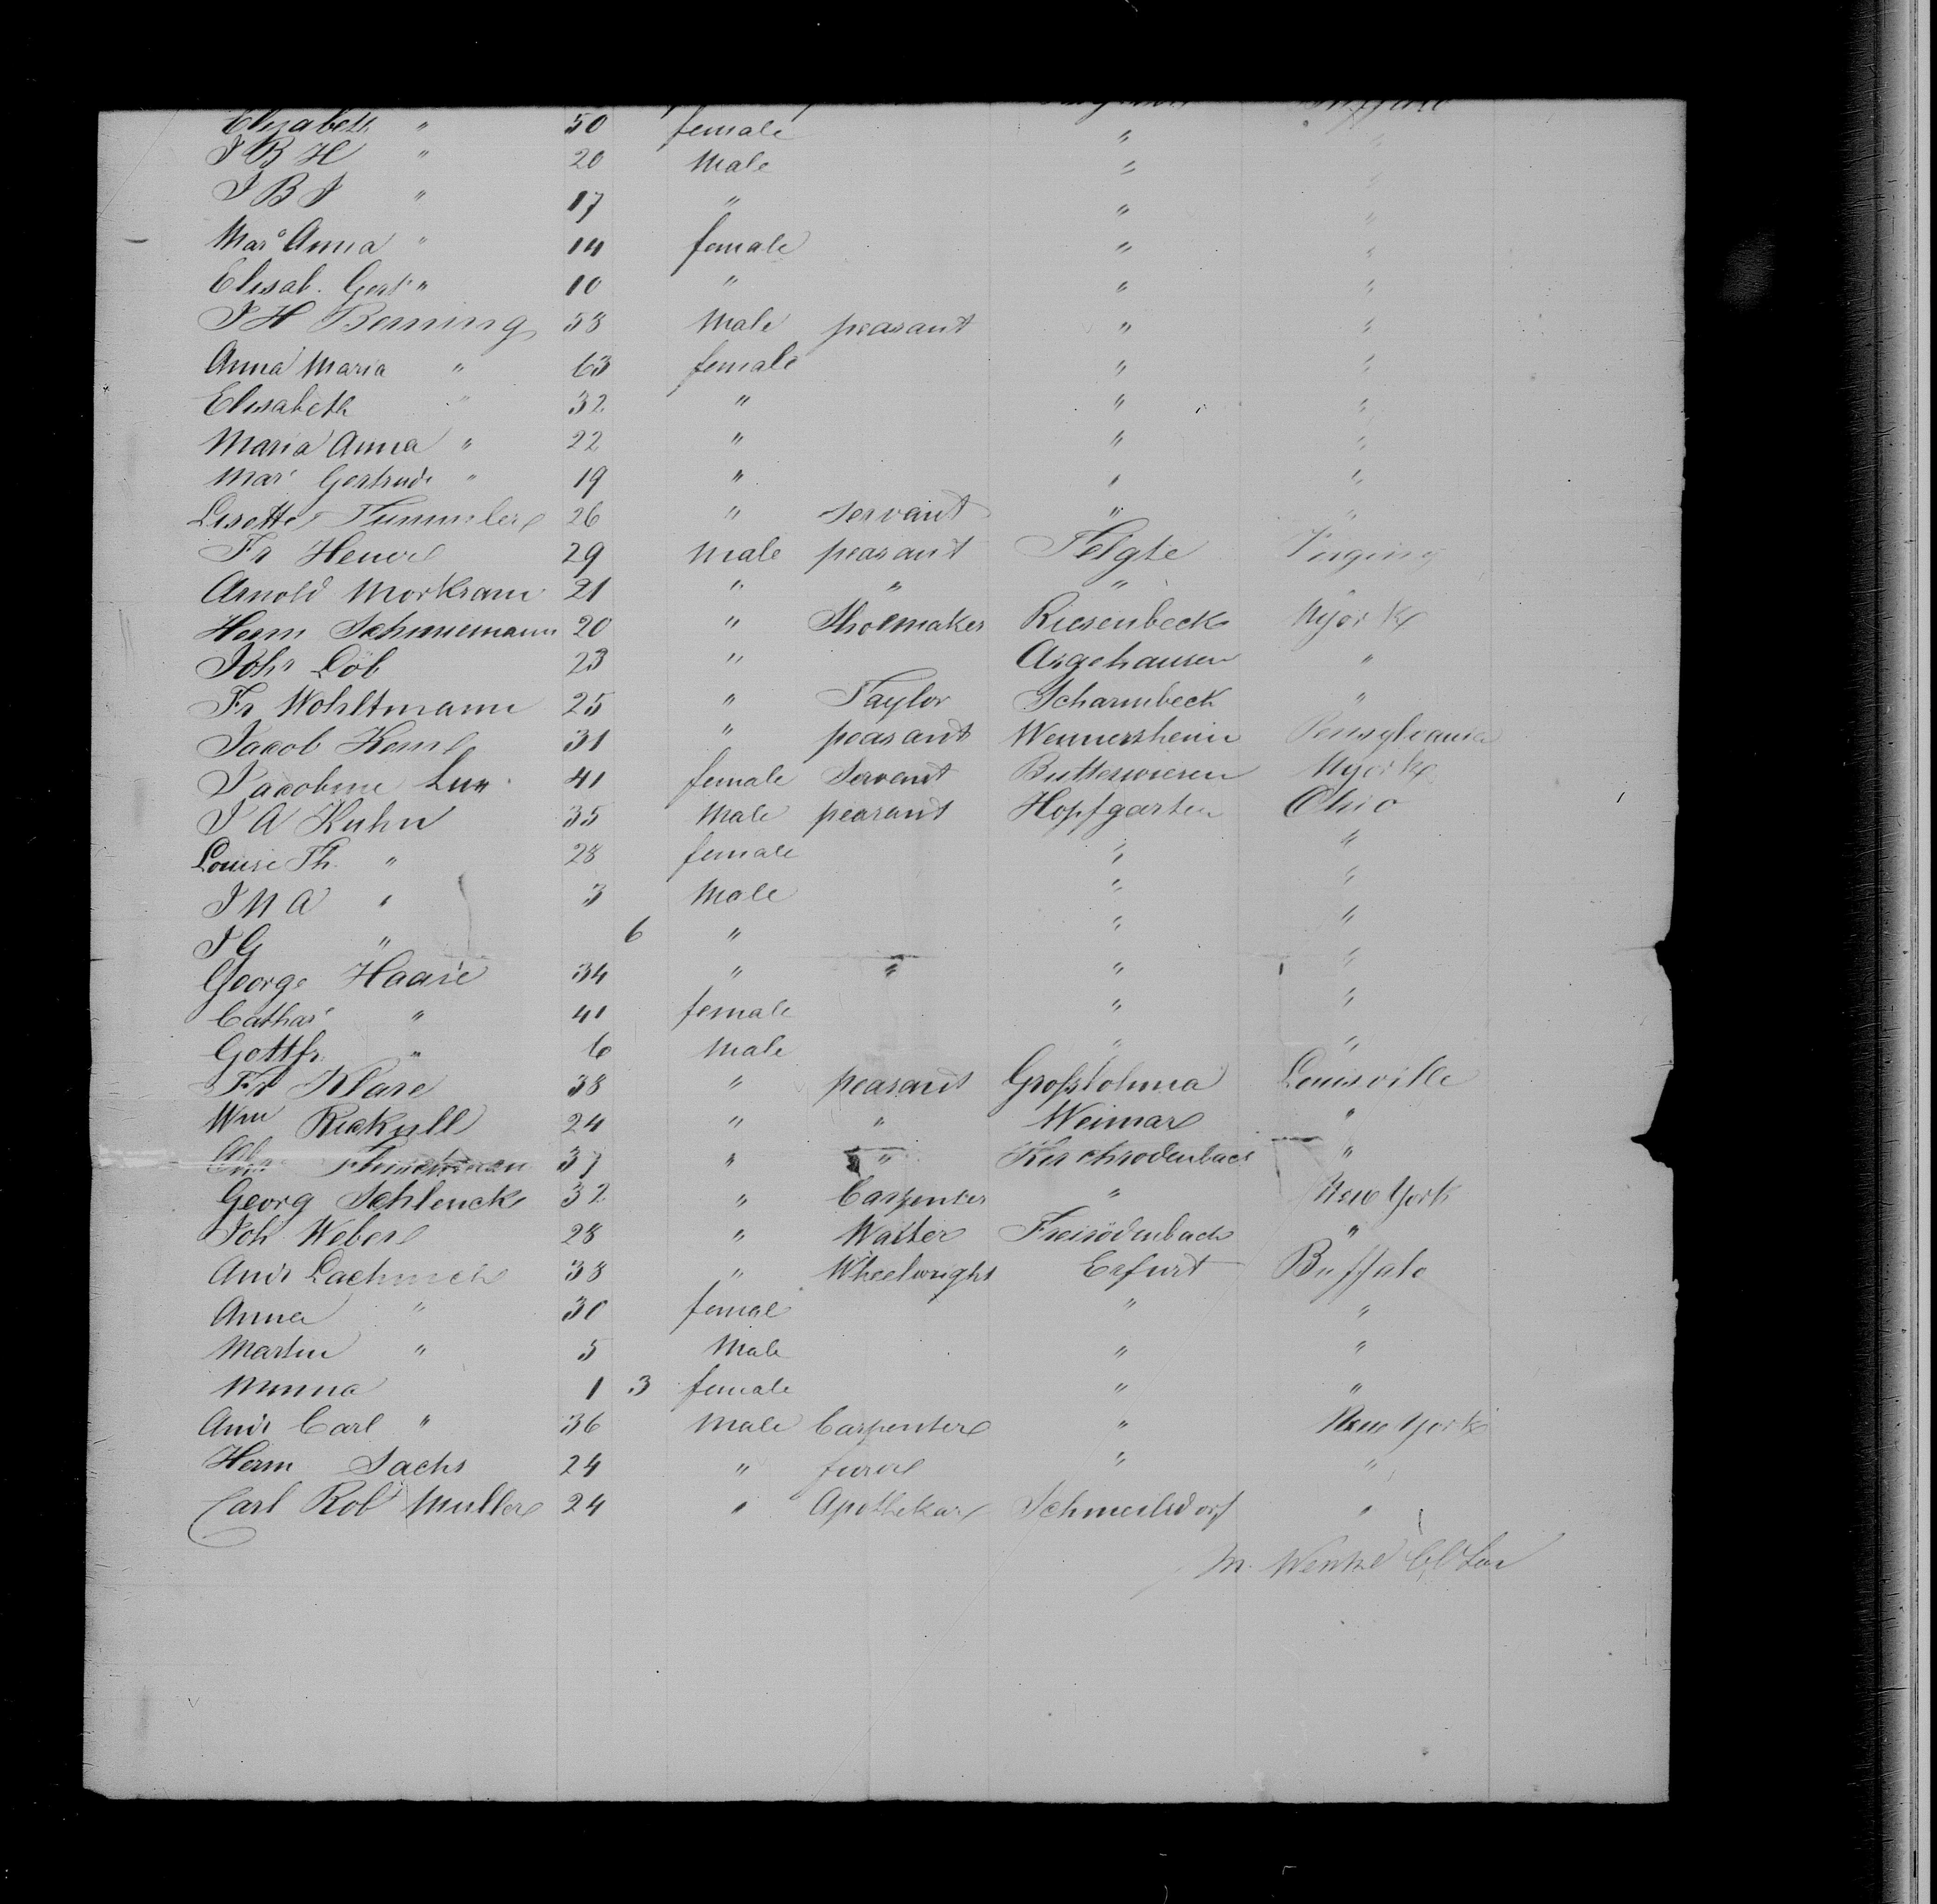 Elisabeth " 50 female " "
J B H " 20 Male " "
J B J " 17 " " "
Mar^a Anna " 14 female " "
Elisab. Gert " 10 " " "
J H Berning 38 Male peasant " "
Anna Maria " 63 female " "
Elisabeth " 32 " " "
Maria Anna " 22 " " "
Mar' Gertrude " 19 " " "
Lisette 26 " servant " "
Fr 29 Male peasant Telgte
Arnold Morksam 21 " " "
Herm Schunemann 20 " Shoemaker Riesenbeck NYork
Joh Löb 23 " "
Fr Wohltmann 25 " Taylor Scharmbeck "
Jacob 31 " peasant Pensylvania
Jacobine 41 female Servant Butterwiesen NYork
J A Kuhn 35 Male peasant Hopfgarten Ohio
Louise Th. " 28 female " "
J N A " 3 Male " "
J G " 6 " " "
George Haase 34 " " " "
Cathar' " 41 female " "
Gottfr. " 6 Male " "
Fr Klare 38 " peasant Louisville
Wm Reckull 24 " " Weimar "
37 " " "
Georg Schlenck 32 " Carpenter " New York
Joh Weber 28 " Waiter "
Andr 38 " Wheelwright Erfurt Buffalo
Anna " 30 female " "
Martin " 5 Male " "
Minna 1 3 female " "
Andr Carl " 36 Male Carpenter " New York
Herm Sachs 24 " " "
Carl Rob Muller 24 " Apothekar Schmeilsdorf "
M.